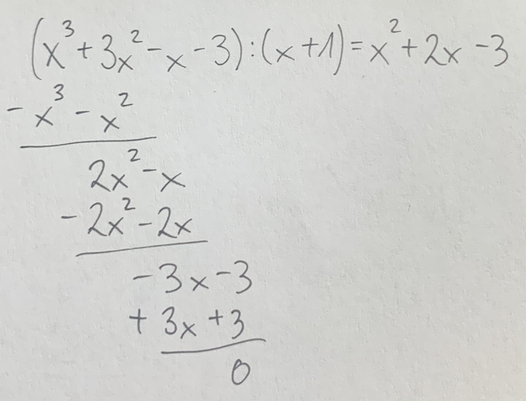 (x³+3x²-x-3):(x+1)=x²+2x-3
-x³-x²
2x²-x
-2x²-2x
-3x-3
+3x+3
0